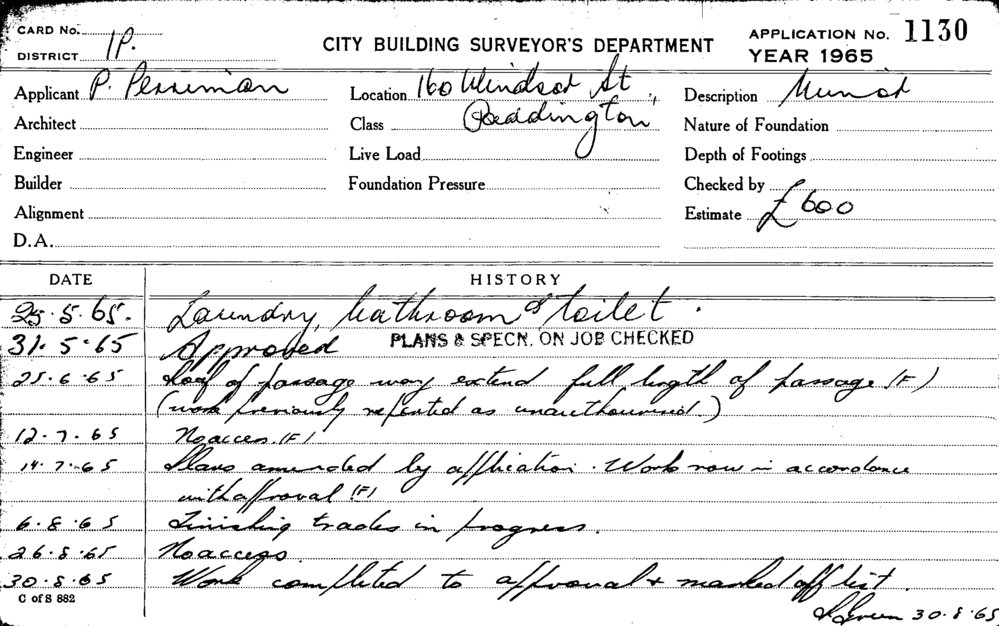 CARD No.
DISTRICT 1P.
CITY BUILDING SURVEYOR'S DEPARTMENT
APPLICATION No. 1130
YEAR 1965
Applicant P. Perriman
Location 160 Windsor St,
Description Minor
Architect
Class Paddington
Nature of Foundation
Engineer
Live Load
Depth of Footings
Builder
Foundation Pressure
Checked by
Alignment
Estimate £600
D.A.
DATE
HISTORY
25.5.65. Laundry, bathroom & toilet.
31.5.65 Approved PLANS & SPECN. ON JOB CHECKED
25.6.65 Roof of passage way extend full length of passage (F)
(work previously reported as unauthourised.)
12.7.65 No access (F)
14.7.65 Plans amended by application. Work now in accordance
with approval (F)
6.8.65 Finishing trades in progress.
26.8.65 No access
30.8.65 Work completed to approval & marked off list.
C of S 882
Green 30.8.65